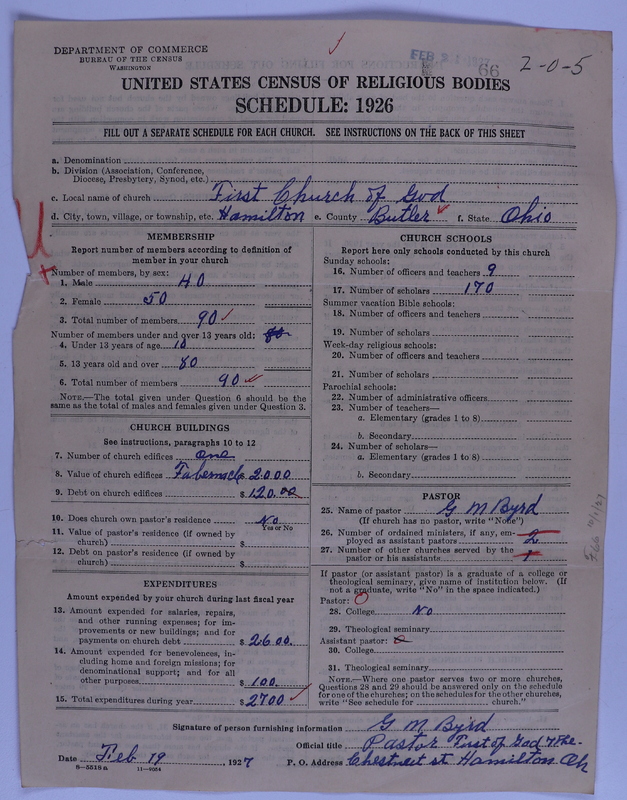 DEPARTMENT OF COMMERCE
BUREAU OF THE CENSUS
WASHINGTON
FEB 21 1927
66
2-0-5
UNITED STATES CENSUS OF RELIGIOUS BODIES
SCHEDULE: 1926
FILL OUT A SEPARATE SCHEDULE FOR EACH CHURCH. SEE INSTRUCTIONS ON THE BACK OF THIS SHEET
a. Denomination
b. Division (Association, Conference,
Diocese, Presbytery, Synod, etc.)
c. Local name of church First Church of God
d. City, town, village, or township, etc. Hamilton e. County Butler f. State Ohio
MEMBERSHIP
Report number of members according to definition of
member in your church
Number of members, by sex:
1. Male 40
2. Female 50
3. Total number of members 90
Number of members under and over 13 years old: 80
4. Under 13 years of age 10
5. 13 years old and over 80
6. Total number of members 90
NOTE.—The total given under Question 6 should be the
same as the total of males and females given under Question 3.
CHURCH BUILDINGS
See instructions, paragraphs 10 to 12
7. Number of church edifices one
8. Value of church edifices Tabernacle 2000
9. Debt on church edifices $ 120.00
10. Does church own pastor's residence No
Yes or No
11. Value of pastor's residence (if owned by
church) $
12. Debt on pastor's residence (if owned by
church) $
EXPENDITURES
Amount expended by your church during last fiscal year
13. Amount expended for salaries, repairs,
and other running expenses; for im-
provements or new buildings; and for
payments on church debt $ 2600.
14. Amount expended for benevolences, in-
cluding home and foreign missions; for
denominational support; and for all
other purposes $ 100.
15. Total expenditures during year $ 2700
CHURCH SCHOOLS
Report here only schools conducted by this church
Sunday schools:
16. Number of officers and teachers 9
17. Number of scholars 170
Summer vacation Bible schools:
18. Number of officers and teachers
19. Number of scholars
Week-day religious schools:
20. Number of officers and teachers
21. Number of scholars
Parochial schools:
22. Number of administrative officers
23. Number of teachers—
a. Elementary (grades 1 to 8)
b. Secondary
24. Number of scholars—
a. Elementary (grades 1 to 8)
b. Secondary
PASTOR
25. Name of pastor G M Byrd
(If church has no pastor, write "None")
26. Number of ordained ministers, if any, em-
ployed as assistant pastors 2
27. Number of other churches served by the
pastor or his assistants 1
If pastor (or assistant pastor) is a graduate of a college or
theological seminary, give name of institution below. (If
not a graduate, write "No" in the space indicated.)
Pastor: O
28. College No
29. Theological seminary
Assistant pastor:
30. College
31. Theological seminary
NOTE.—Where one pastor serves two or more churches,
Questions 28 and 29 should be answered only on the schedule
for one of the churches; on the schedules for the other churches,
write "See schedule for church."
Signature of person furnishing information G M Byrd
Official title Pastor First of God 7 the
Date Feb 19 1927 P. O. Address Chestnut st. Hamilton Oh
8-5518a 11-9054